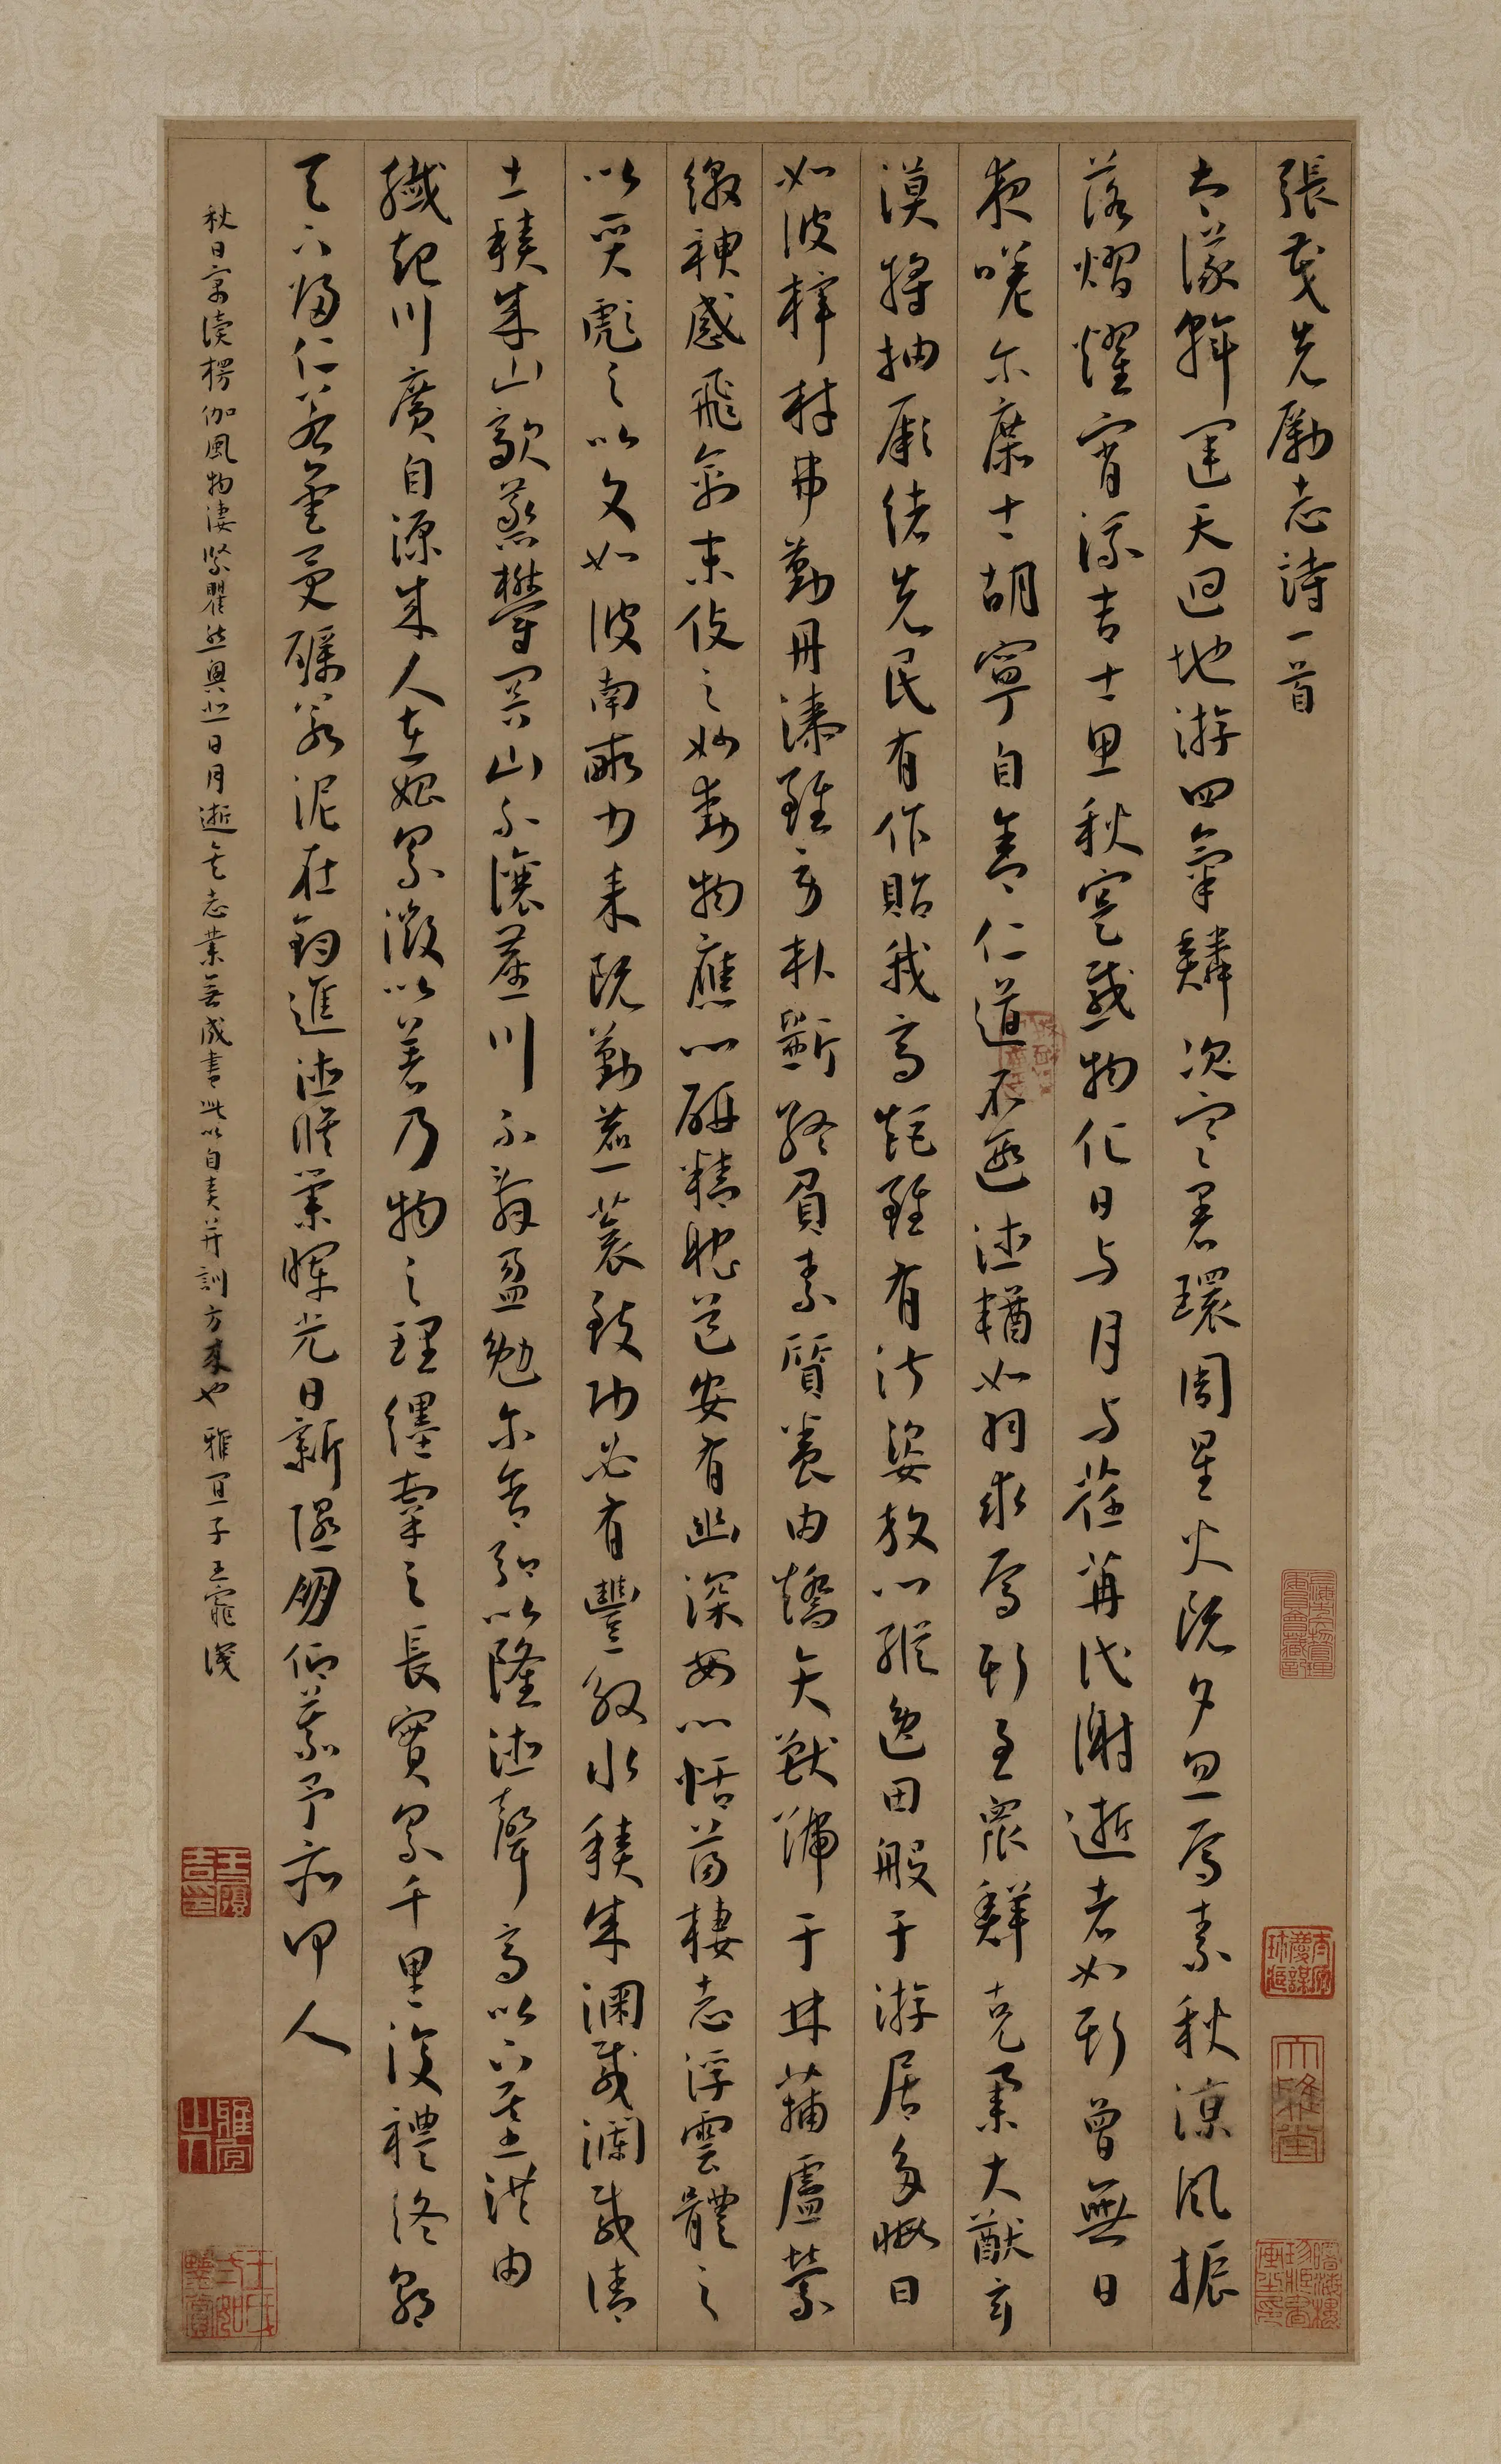 張茂先勵志詩一首
大儀斡運天迴地游四氣鱗次寒暑環周星火既夕忽焉素秋涼風振
落熠燿宵流吉士思秋寔感物化日与月与荏苒代謝逝者如斯曾無日
夜嗟尔庶士胡寧自舍仁道不遐德輶如羽求焉斯至衆鮮克舉大猷玄
漠將抽厥緒先民有作貽我高矩雖有淑姿放心縱逸田般于游居多暇日
如彼梓材弗勤丹漆雖勞朴斲終負素質養由矯矢獸號于林蒱盧縈
繳神感飛禽末伎之妙動物應心研精耽道安有幽深安心恬蕩棲志浮雲體之
以質彪之以文如彼南畝力耒既勤藨蓘致功必有豐殷水積成淵載瀾載清
土積成山歊蒸鬱冥山不讓塵川不辭盈勉尔含弘以隆德聲高以下基洪由
纖起川廣自源成人在始累微以著乃物之理纆牽之長實累千里復禮終朝
天下歸仁若金受礪若泥在鈞進德脩業暉光日新隰朋仰慕予亦何人
秋日寓讀楞伽風物淒緊瞿然興悲日月逝矣志業無成書此以自責并訓方來也 雅宜子王寵識
王履吉印
雅宜山人
大雅堂